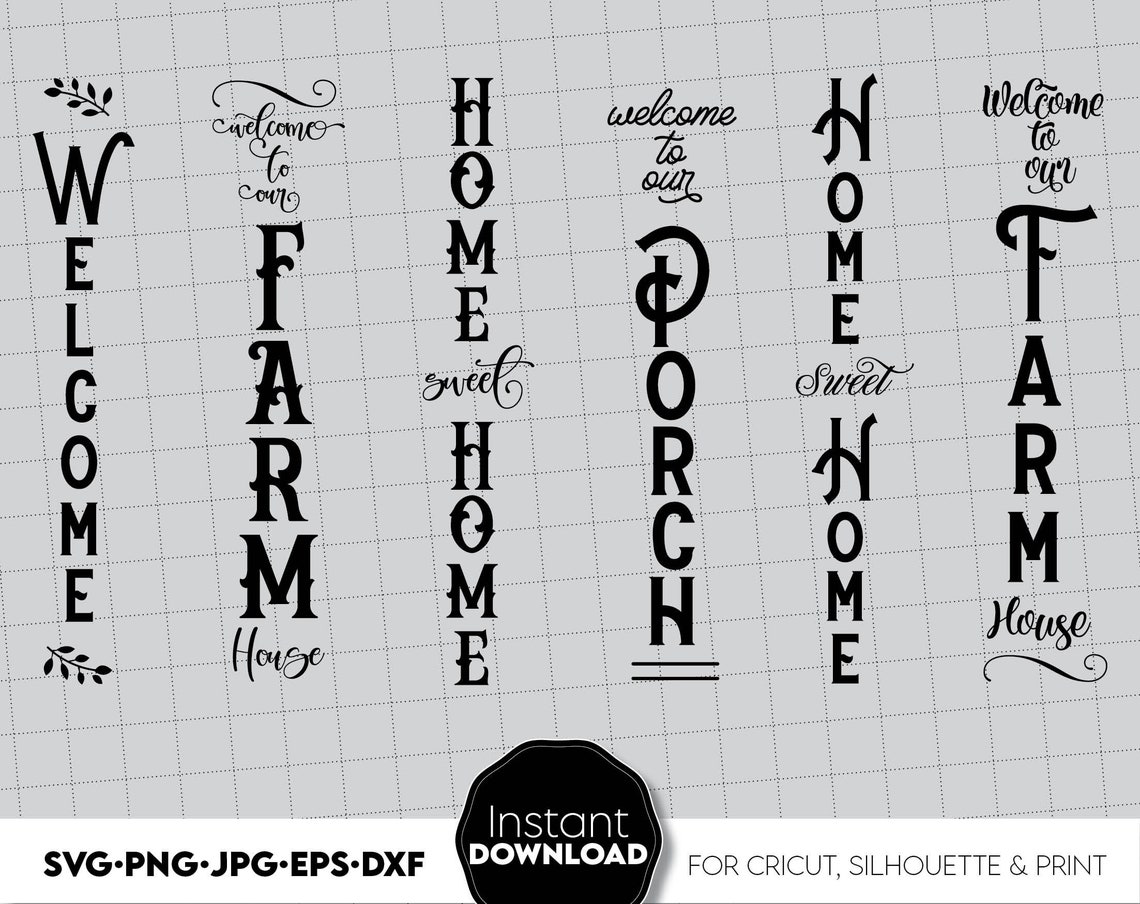 WELCOME
welcome
to
our
FARM
House
HOME
sweet
HOME
welcome
to
our
PORCH
HOME
Sweet
HOME
Welcome
to
our
FARM
House
SVG•PNG•JPG•EPS•DXF
Instant
DOWNLOAD
FOR CRICUT, SILHOUETTE & PRINT